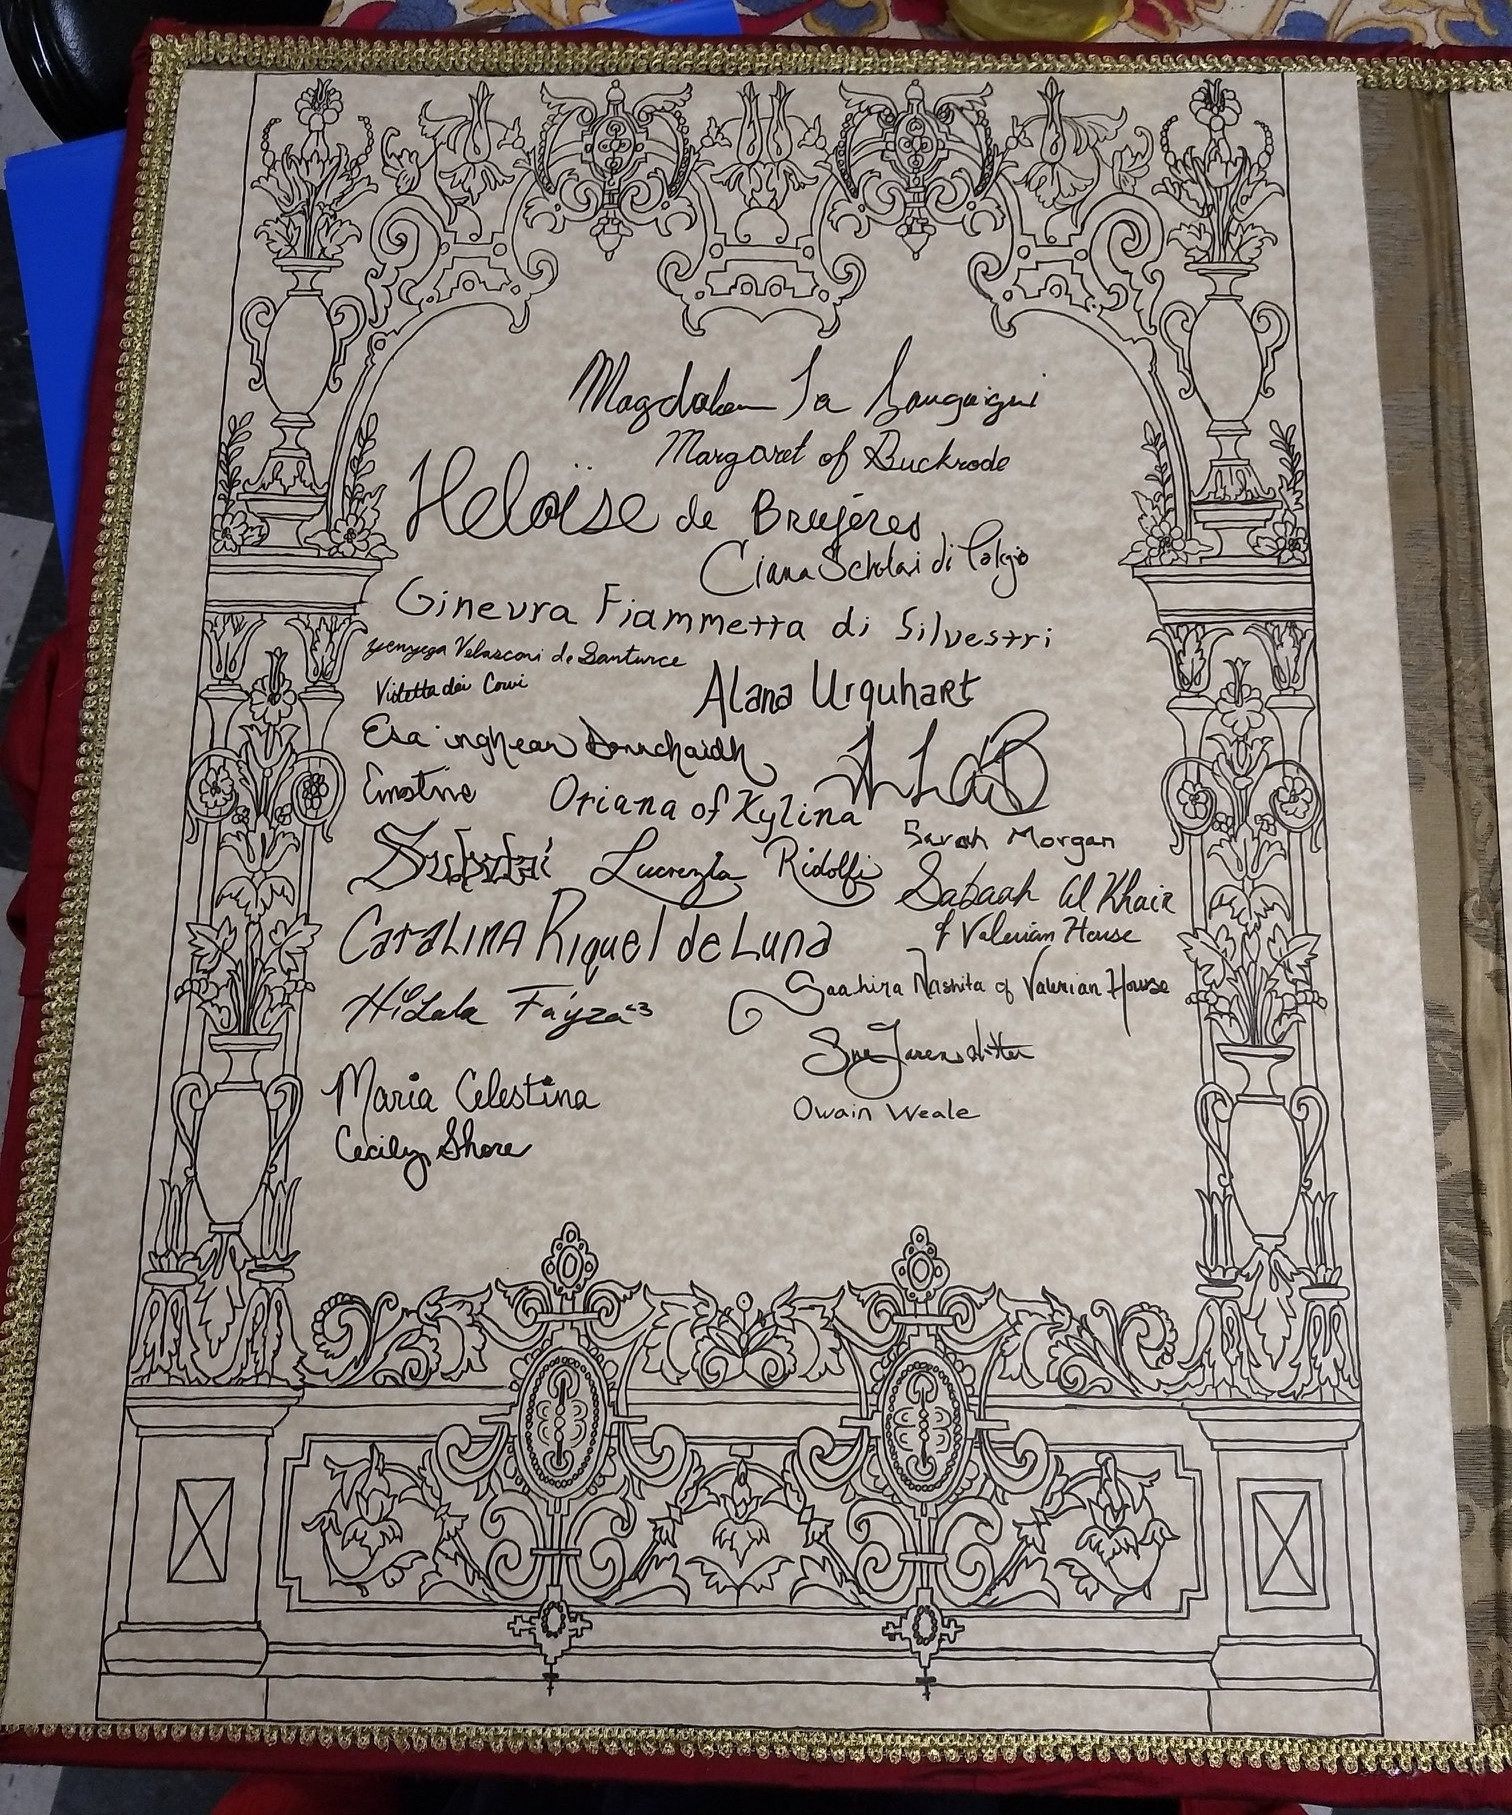 Magdalen
Margaret of Buckrode
Heloïse de Brujéres
Ciana Scholari di
Ginevra Fiammetta di Silvestri
Velasconi de Santurce
Violetta dei Corvi
Alana Urquhart
Esa inghean Donnchaidh
Oriana of Kylina
Sarah Morgan
Subutai Lucrezia Ridolfi
Sabaah al Khair
of Valerian House
CATALINA Riquel de Luna
Saahira Nashita of Valerian House
HiLala Fáyza <3
Maria Celestina
Owain Weale
Cecily Shore